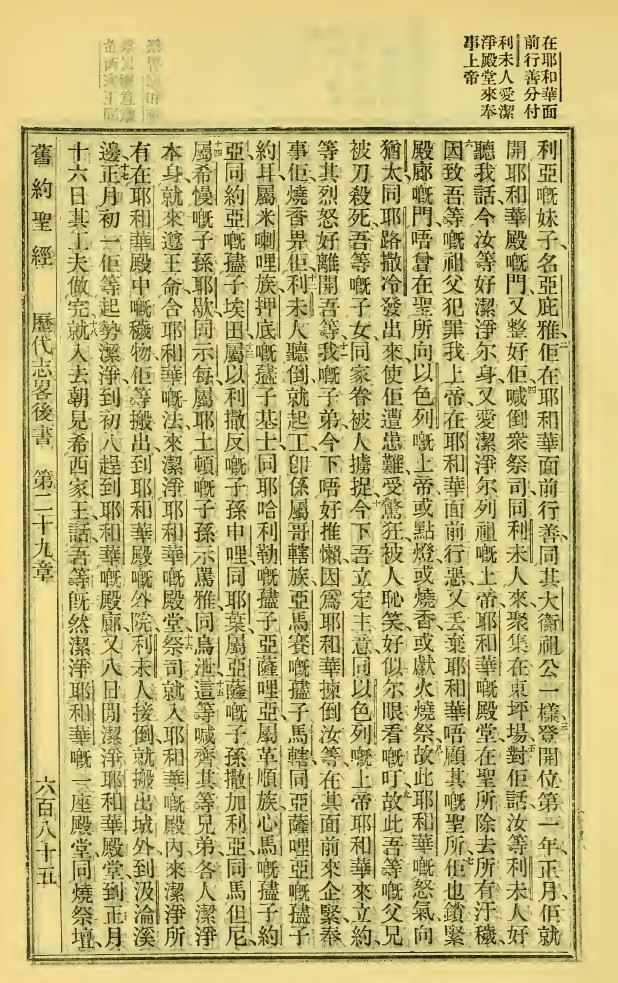 在耶和華面
前行善分付
利未人愛潔
淨殿堂來奉
事上帝
利亞嘅妹子名亞庇雅佢在耶和華面前行善同其大衛祖公一樣登開位第一年正月佢就
開耶和華殿嘅門又整好佢喊倒衆祭司同利未人來聚集在東坪場對佢話汝等利未人好
聽我話今汝等好潔淨尔身又愛潔淨尔列祖嘅上帝耶和華嘅殿堂在聖所除去所有汙穢
因致吾等嘅祖父犯罪我上帝在耶和華面前行惡又丟棄耶和華唔顧其嘅聖所佢也鎖緊
殿廊嘅門唔曾在聖所向以色列嘅上帝或點燈或燒香或獻火燒祭故此耶和華嘅怒氣向
猶太同耶路撒冷發出來使佢遭患難受驚狂被人恥笑好似尔眼看嘅吁故此吾等嘅父兄
被刀殺死吾等嘅子女同家眷被人擄捉今下吾立定主意同以色列嘅上帝耶和華來立約
等其烈怒好離開吾等我嘅子弟今下唔好推懶因爲耶和華揀倒汝等在其面前來企緊奉
事佢燒香畀佢利未人聽倒就起工卽係屬哥轄族亞馬賽嘅孻子馬轄同亞薩哩亞嘅孻子
約耳屬米喇哩族押底嘅孻子基士同耶哈利勒嘅孻子亞薩哩亞屬革順族心馬嘅孻子約
亞同約亞嘅孻子埃田屬以利撒反嘅子孫申哩同耶葉屬亞薩嘅子孫撒加利亞同馬但尼
屬希慢嘅子孫耶歇同示每屬耶土頓嘅子孫示罵雅同烏泄這等喊齊其等兄弟各人潔淨
本身就來遵王命合耶和華嘅法來潔淨耶和華嘅殿堂祭司就入耶和華嘅殿內來潔淨所
有在耶和華殿中嘅穢物佢等搬出到耶和華殿嘅外院利未人接倒就搬出城外到汲淪溪
邊正月初一佢等起勢潔淨到初八趕到耶和華嘅殿廊又八日間潔淨耶和華殿堂到正月
十六日其工夫做完就入去朝見希西家王話吾等旣然潔淨耶和華嘅一座殿堂同燒祭壇
舊約聖經 歷代志畧後書 第二十九章 六百八十五